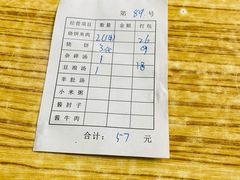 第 89 号
经营项目 数量 金额 打包
烧饼夹肉 2(1肉) 26
烧饼 3
杂碎汤 1
豆泡汤 1 18
羊肚汤
小米粥
酱肘子
酱牛肉
合计: 57 元